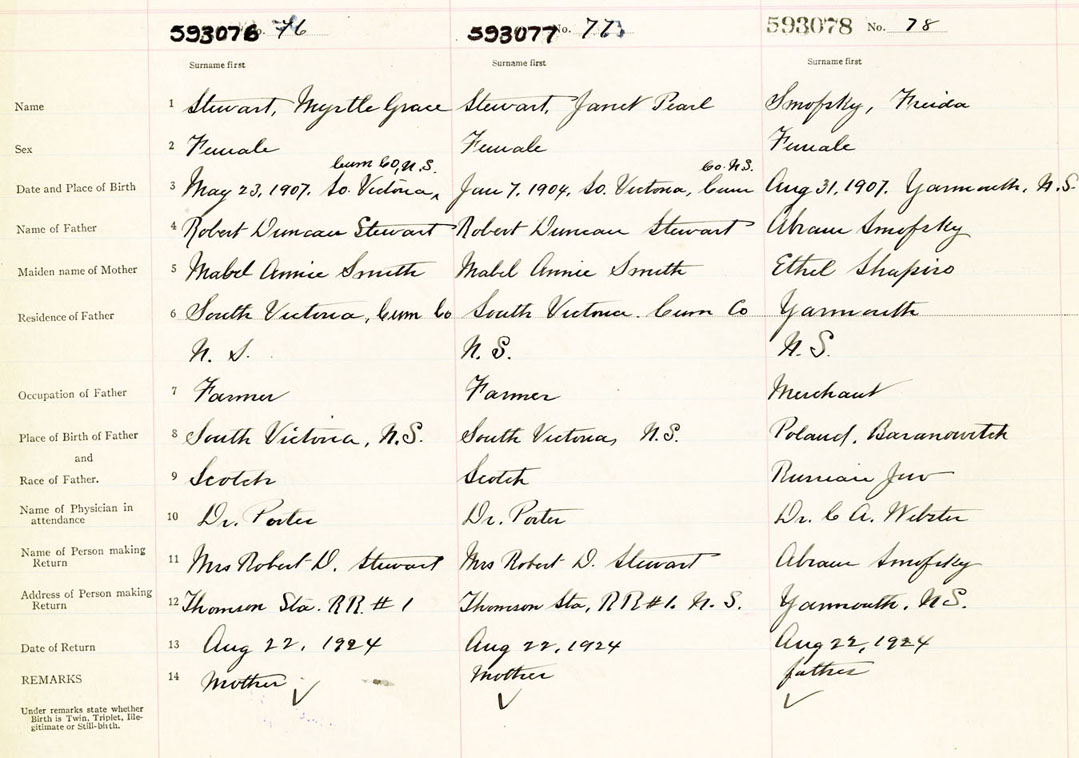 593076 No. 76 593077 No. 77 593078 No. 78
Surname first Surname first Surname first
Name 1 Stewart, Myrtle Grace Stewart, Janet Pearl Smofsky, Freida
Sex 2 Female Female Female
Cum Co, N.S. Co. N.S.
Date and Place of Birth 3 May 23, 1907. So. Victoria, Jan 7, 1904, So. Victoria, Cum Aug 31, 1907. Yarmouth, N.S
Name of Father 4 Robert Duncan Stewart Robert Duncan Stewart Abram Smofsky
Maiden name of Mother 5 Mabel Annie Smith Mabel Annie Smith Ethel Shapiro
Residence of Father 6 South Victoria, Cum Co South Victoria. Cum Co Yarmouth
N. S. N. S. N. S.
Occupation of Father 7 Farmer Farmer Merchant
Place of Birth of Father 8 South Victoria, N.S. South Victoria, N.S. Poland, Baranowitch
and
Race of Father. 9 Scotch Scotch Russian Jew
Name of Physician in
attendance 10 Dr. Porter Dr. Porter Dr. C A. Webster
Name of Person making
Return 11 Mrs Robert D. Stewart Mrs Robert D. Stewart Abram Smofsky
Address of Person making
Return 12 Thomson Sta. RR # 1 Thomson Sta, RR #1. N. S. Yarmouth, N.S.
Date of Return 13 Aug 22, 1924 Aug 22, 1924 Aug 22, 1924
REMARKS 14 Mother Mother father
Under remarks state whether
Birth is Twin, Triplet, Ille-
gitimate or Still-birth.